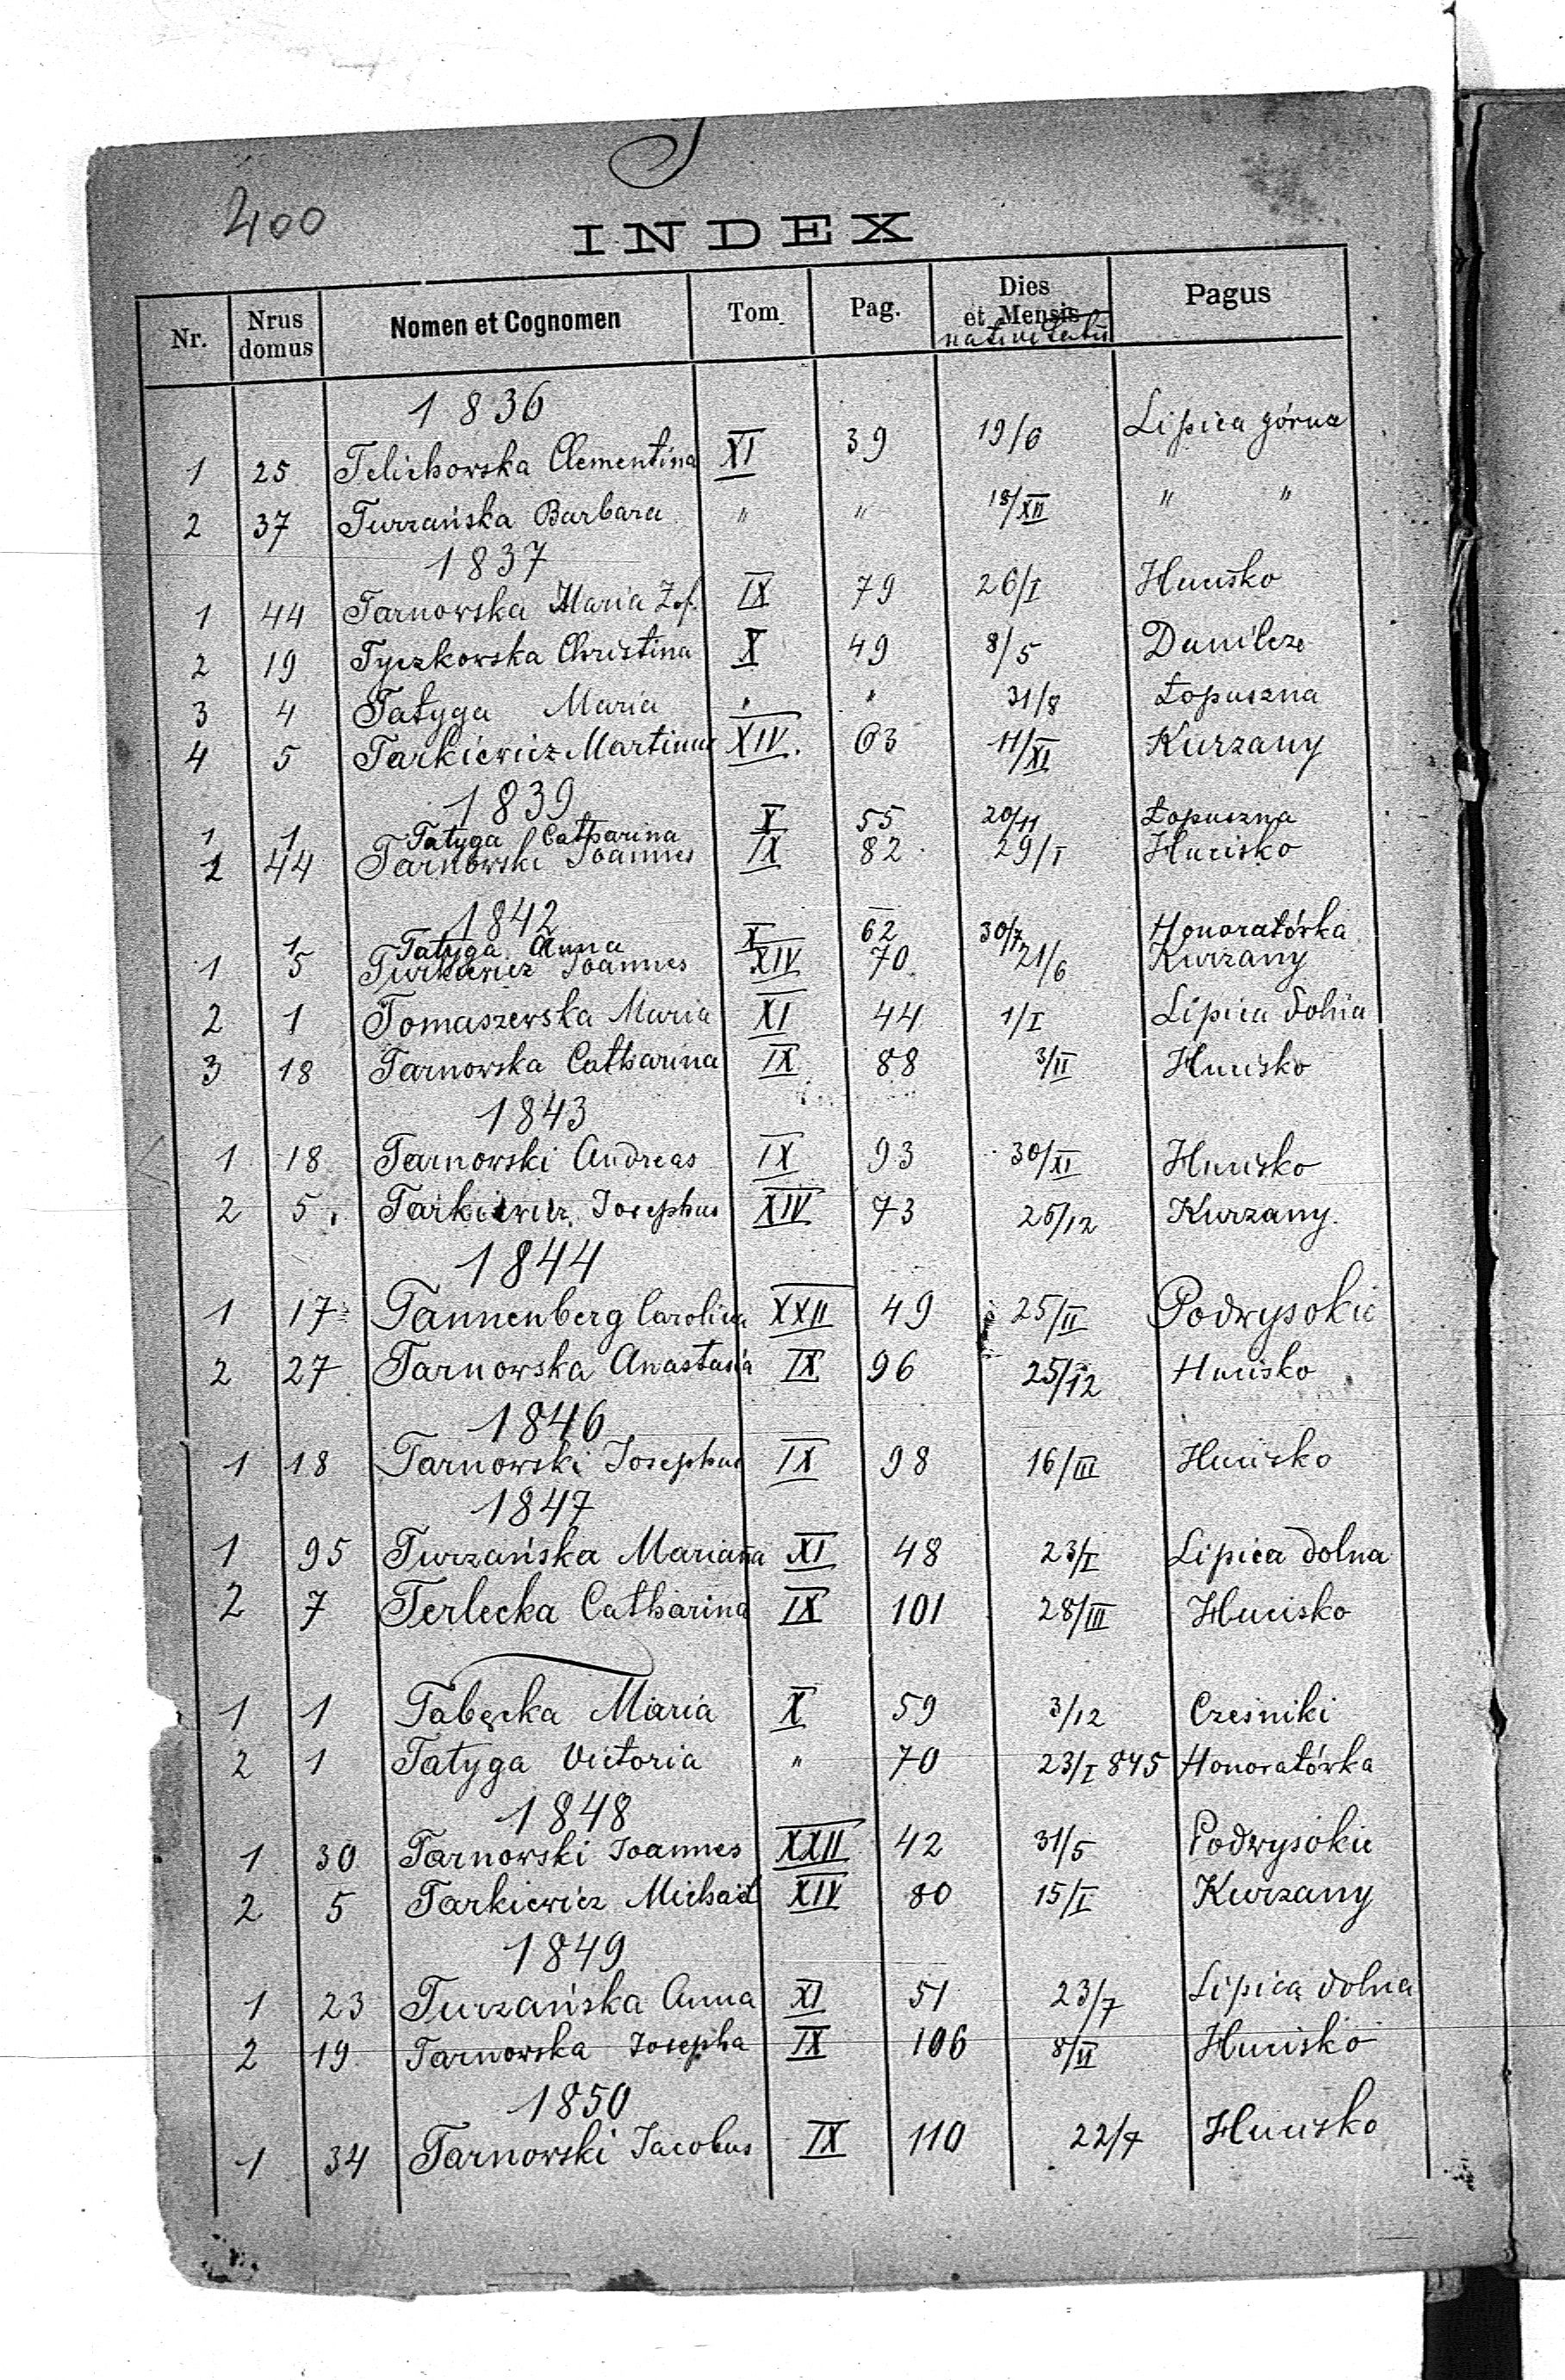 T
400
INDEX
Nr. Nrus domus Nomen et Cognomen Tom Pag. Dies et Mensis nativitatis Pagus
1836
1 25 Telichowska Clementina XI 39 19/6 Lipica górna
2 37 Turzańska Barbara " " 18/XII " "
1837
1 44 Tarnowska Maria Zof. IX 79 26/I Hucisko
2 19 Tyczkowska Christina X 49 8/5 Danilcze
3 4 Tatyga Maria " " 31/8 Łopuszna
4 5 Tarkiewicz Martinus XIV. 63 11/XI Kurzany
1839
1 1 Tatyga Catharina X 55 20/11 Łopuszna
2 44 Tarnowski Joannes IX 82 29/I Hucisko
1842
1 Tatyga Anna X 62 30/7 Honoratówka
1 5 Turkiewicz Joannes XIV 70 21/6 Kurzany
2 1 Tomaszewska Maria XI 44 1/I Lipica dolna
3 18 Tarnowska Catharina IX 88 3/II Hucisko
1843
1 18 Tarnowski Andreas IX 93 30/XI Hucisko
2 5 Tarkiewicz Josephus XIV 73 26/12 Kurzany.
1844
1 17 Tannenberg Carolina XXII 49 25/II Podwysokie
2 27 Tarnowska Anastasia IX 96 25/12 Hucisko
1846
1 18 Tarnowski Josephus IX 98 16/III Hucisko
1847
1 95 Turzańska Marianna XI 48 23/I Lipica dolna
2 7 Terlecka Catharina IX 101 28/III Hucisko
1 1 Tabęcka Maria X 59 3/12 Cześniki
2 1 Tatyga Victoria " 70 23/I 845 Honoratówka
1848
1 30 Tarnowski Joannes XXII 42 31/5 Podwysokie
2 5 Tarkiewicz Michael XIV 80 15/I Kurzany
1849
1 23 Turzańska Anna XI 51 23/7 Lipica dolna
2 19 Tarnowska Josepha IX 106 8/II Hucisko
1850
1 34 Tarnowski Jacobus IX 110 22/7 Hucisko